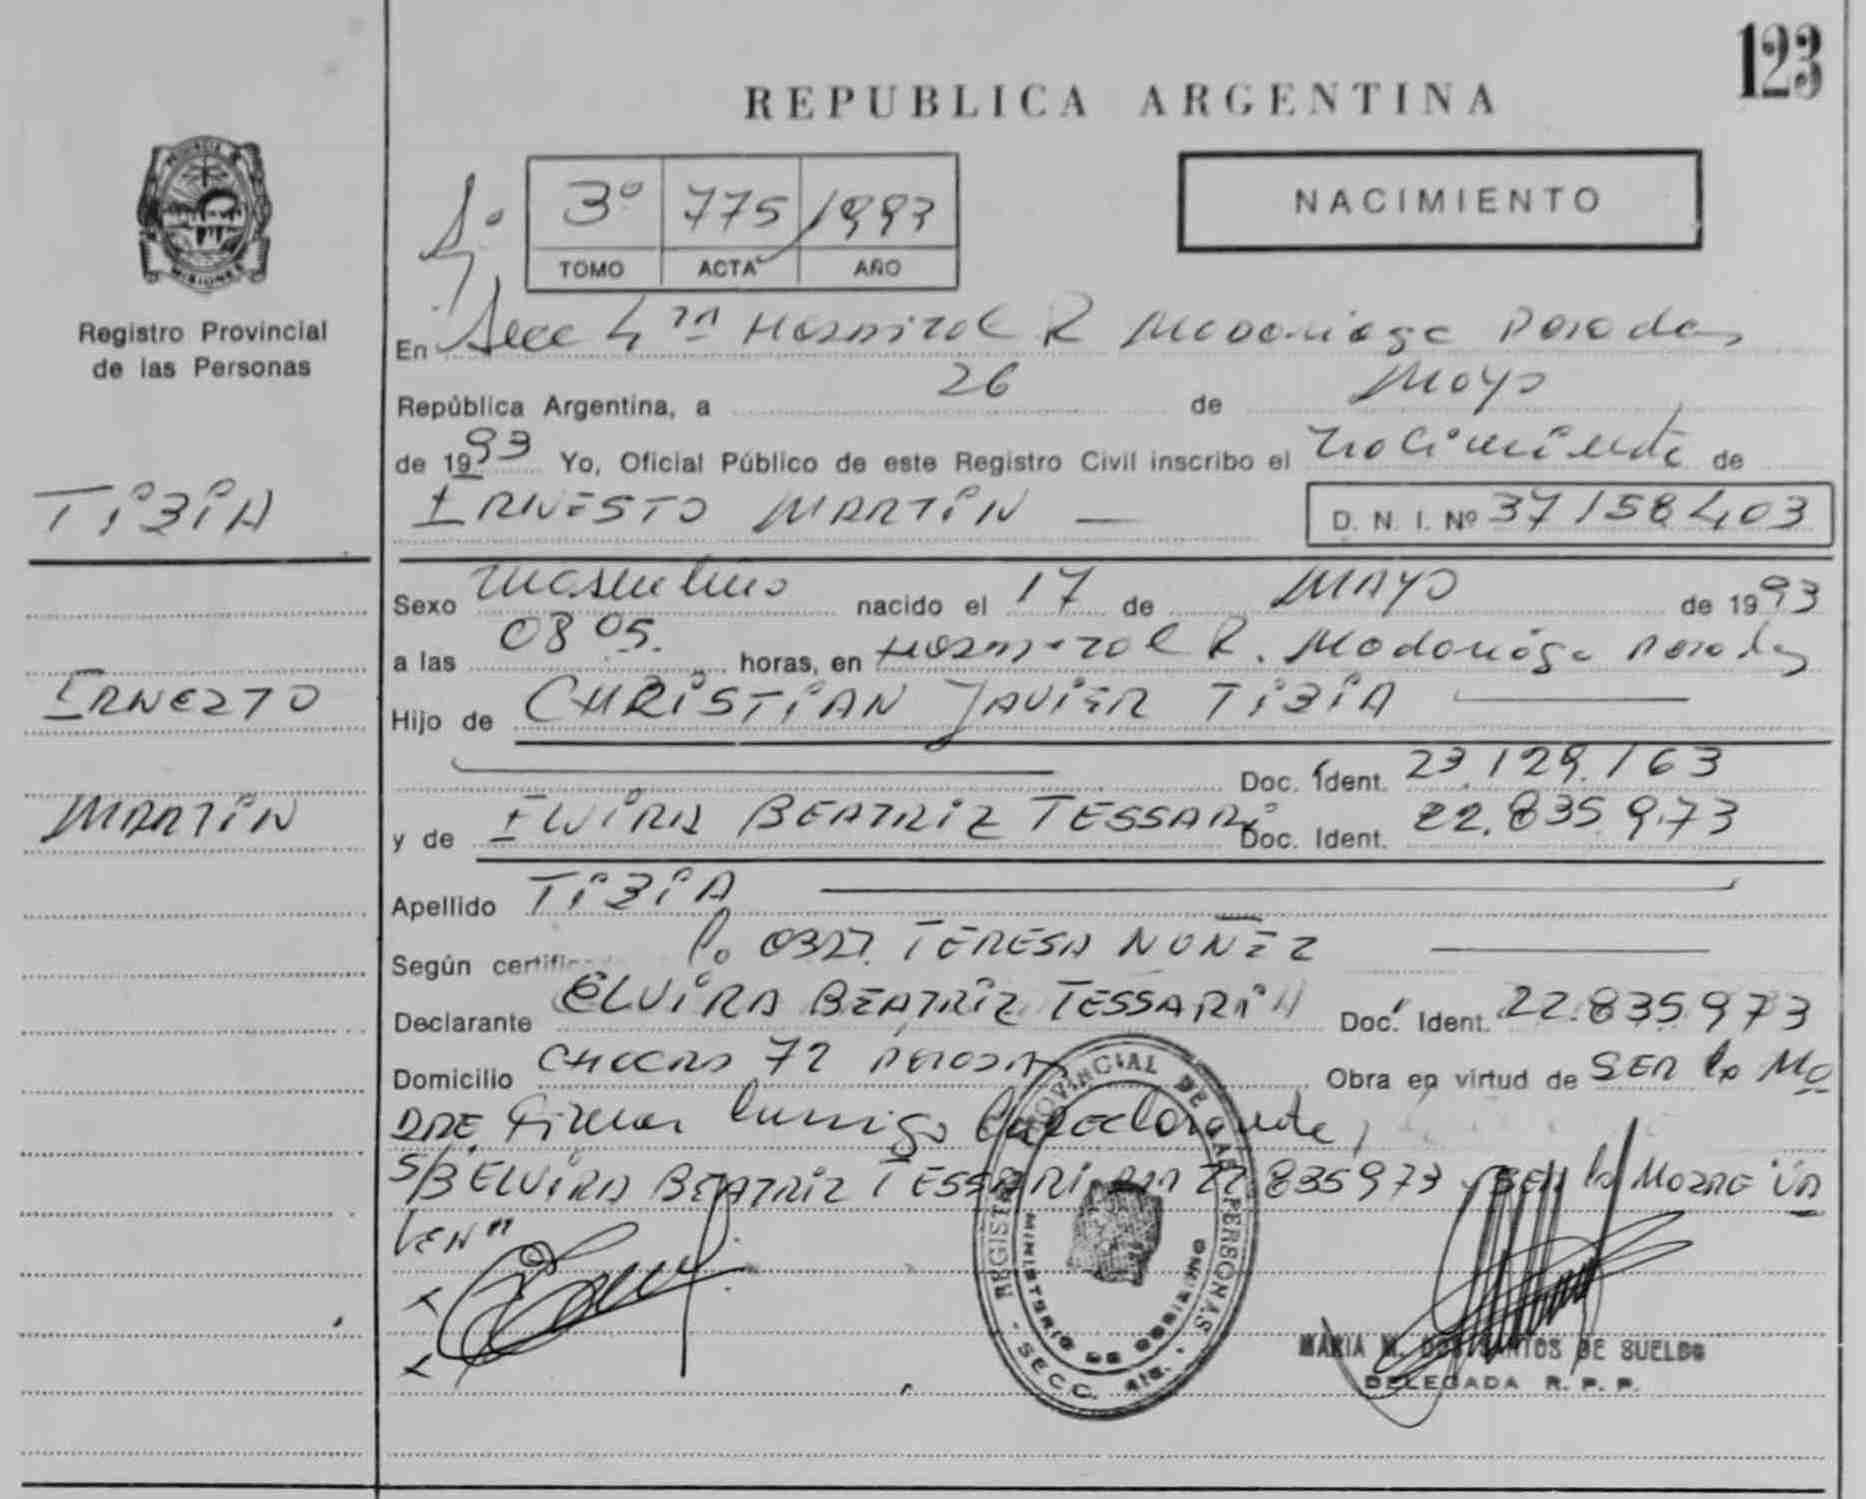 123
REPUBLICA ARGENTINA
NACIMIENTO
3º 775 1993
TOMO ACTA AÑO
PROVINCIA DE MISIONES
Registro Provincial
de las Personas
En Secc 4ta Hospital R Madariaga Posadas
República Argentina, a 26 de Mayo
de 1993 Yo, Oficial Público de este Registro Civil inscribo el nacimiento de
ERNESTO MARTIN — D. N. I. Nº 37158403
TIZIA
ERNEZTO
MARTIN
Sexo masculino nacido el 17 de MAYO de 1993
a las 08 05. horas, en Hospital R. Madariaga Posadas
Hijo de CHRISTIAN JAVIER TIZIA
Doc. Ident. 23.129.163
y de ELVIRA BEATRIZ TESSARI Doc. Ident. 22.835.973
Apellido TIZIA
Según certific P. 0327. TERESA NUÑEZ
Declarante ELVIRA BEATRIZ TESSARI Doc. Ident. 22.835973
Domicilio 72 Obra en virtud de SER la MA
DRE. Firma conmigo la declarante,
S/B ELVIRA BEATRIZ TESSARI 22 835973 SER la MADRE VA
LEN"
REGISTRO PROVINCIAL DE LAS PERSONAS
MINISTERIO DE GOBIERNO
SECC. 4ta.
MARIA M. DOS SANTOS DE SUELDO
DELEGADA R. P. P.